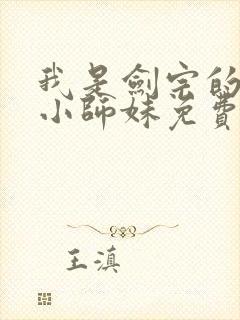 我是劍宗的
小師妹免費
王滇